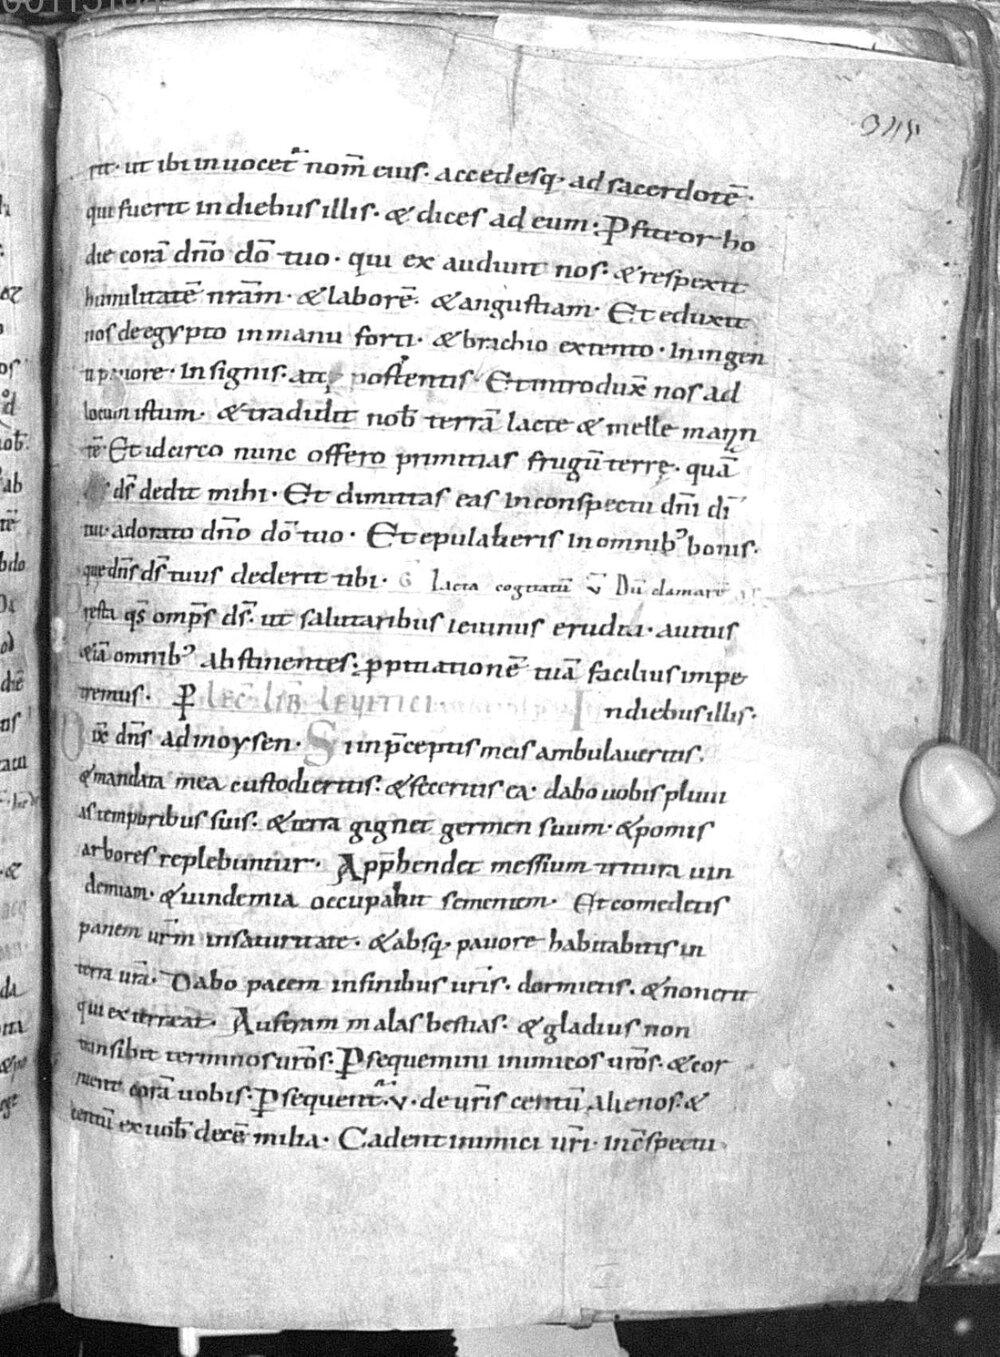 rit· ut ibi inuocet᷑ nom̄ eius· accedesq; ad sacerdotē·
qui fuerit in diebus illis· & dices ad eum· Ꝓfiteor ho
die corā dn̄o dō tuo· qui exaudiuit nos· & respexit
humilitatē nr̄am· & laborē· & angustiam· Et eduxit
nos de egypto in manu forti· & brachio extento· In ingen
ti pauore· In signis· atq; portentis· Et introdux̄ nos ad
locum istum· & tradidit nob̄ terrā lacte & melle manan
tē· Et idcirco nunc offero primitias frugū terrę· quā
ds̄ dedit mihi· Et dimittas eas in conspectu dn̄i dī
tui· adorato dn̄o dō tuo· Et epulaberis in omnib; bonis·
que dn̄s ds̄ tuus dederit tibi· G Laeta cogitatū ꝟ Dū clamarē
resta qs̄ omp̄s ds̄· ut salutaribus ieiuniis erudita· a uitiis
etiā omnib; abstinentes· ꝓpitiationē tuā facilius impe
tremus· P̄ Lec̄ LIB̄ LEVITICI In diebus illis·
Dix̄ dn̄s ad moysen· Si in p̄ceptis meis ambulaueritis·
& mandata mea custodieritis· & feceritis ea· dabo uobis pluui
as temporibus suis· & terra gignet germen suum· & pomis
arbores replebuntur· App̄hendet messium tritura uin
demiam· & uindemia occupabit sementem· Et comedetis
panem ur̄m in saturitate· & absq; pauore habitabitis in
terra ur̄a· Dabo pacem in finibus ur̄is· dormietis· & non erit
qui exterreat· Auferam malas bestias· & gladius non
transibit terminos ur̄os· Persequemini inimicos ur̄os· & cor
ruent corā uobis· Persequent᷑·v· de ur̄is centū alienos· &
centū ex uob̄ decē milia· Cadent inimici ur̄i· in c̄spectu